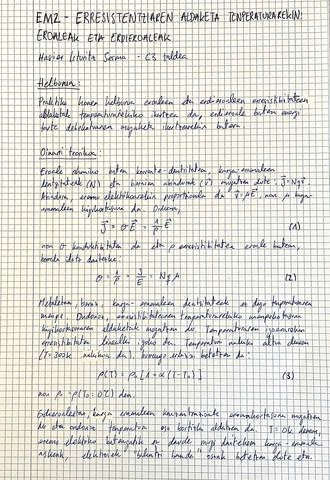 EM2 - ERRESISTENTZIAREN ALDAKETA TENPERATURAREKIN:
EROALEAK ETA ERDIEROALEAK
Havier Iturria Serma - C3 taldea
Helburua:
Praktika honen helburua eroaleen eta erdieroaleen erresistibitateen
aldaketak tenperaturarekiko ikustea da, erdieroale baten energi
tarte debekatuaren
Oinarri teorikoa:
Eroale ohmiko baten korronte-dentsitatea, karga-eramaileen
dentsitateak (N) eta beraien abiadurak (v⃗) mugatzen dute: J⃗=Nqv⃗.
Abiadura, eremu elektrikoarekin proportzionala da v⃗=μE⃗, non μ karga-
eramaileen higikortasuna da. Orduan,
J⃗ = σE⃗ = 1/ρ E⃗ (1)
non σ konduktibitatea da eta ρ erresistibitatea eroale batean,
honela idatz daitezke:
σ = 1/ρ = J/E = Nqμ (2)
Metaletan, berriz, karga-eramaileen dentsitateak ez dago tenperaturaren
menpe. Ondorioz, erresistibitatearen tenperaturarekiko menpekotasuna
higikortasunaren aldaketak mugatzen du. Tenperaturaren igoerarekin
erresistibitatea linealki igoko da. Tenperatura nahiko altua denean
(T=300K nahikoa da), hurrengo erlazioa betetzen da:
ρ(T) = ρ₀[1+α(T-T₀)] (3)
non ρ₀ = ρ(T₀=0°C) den.
Erdieroaleetan, karga eramaileen kontzentrazioak eroankortasuna mugatzen
du eta ondorioz tenperatura oso bortizki aldatzen da. T=0K denean,
eremu elektriko batengatik ez daude mugi daitezkeen karga-eramaile
askeak, elektroiek "balentzi banda" osoak betetzen dute eta